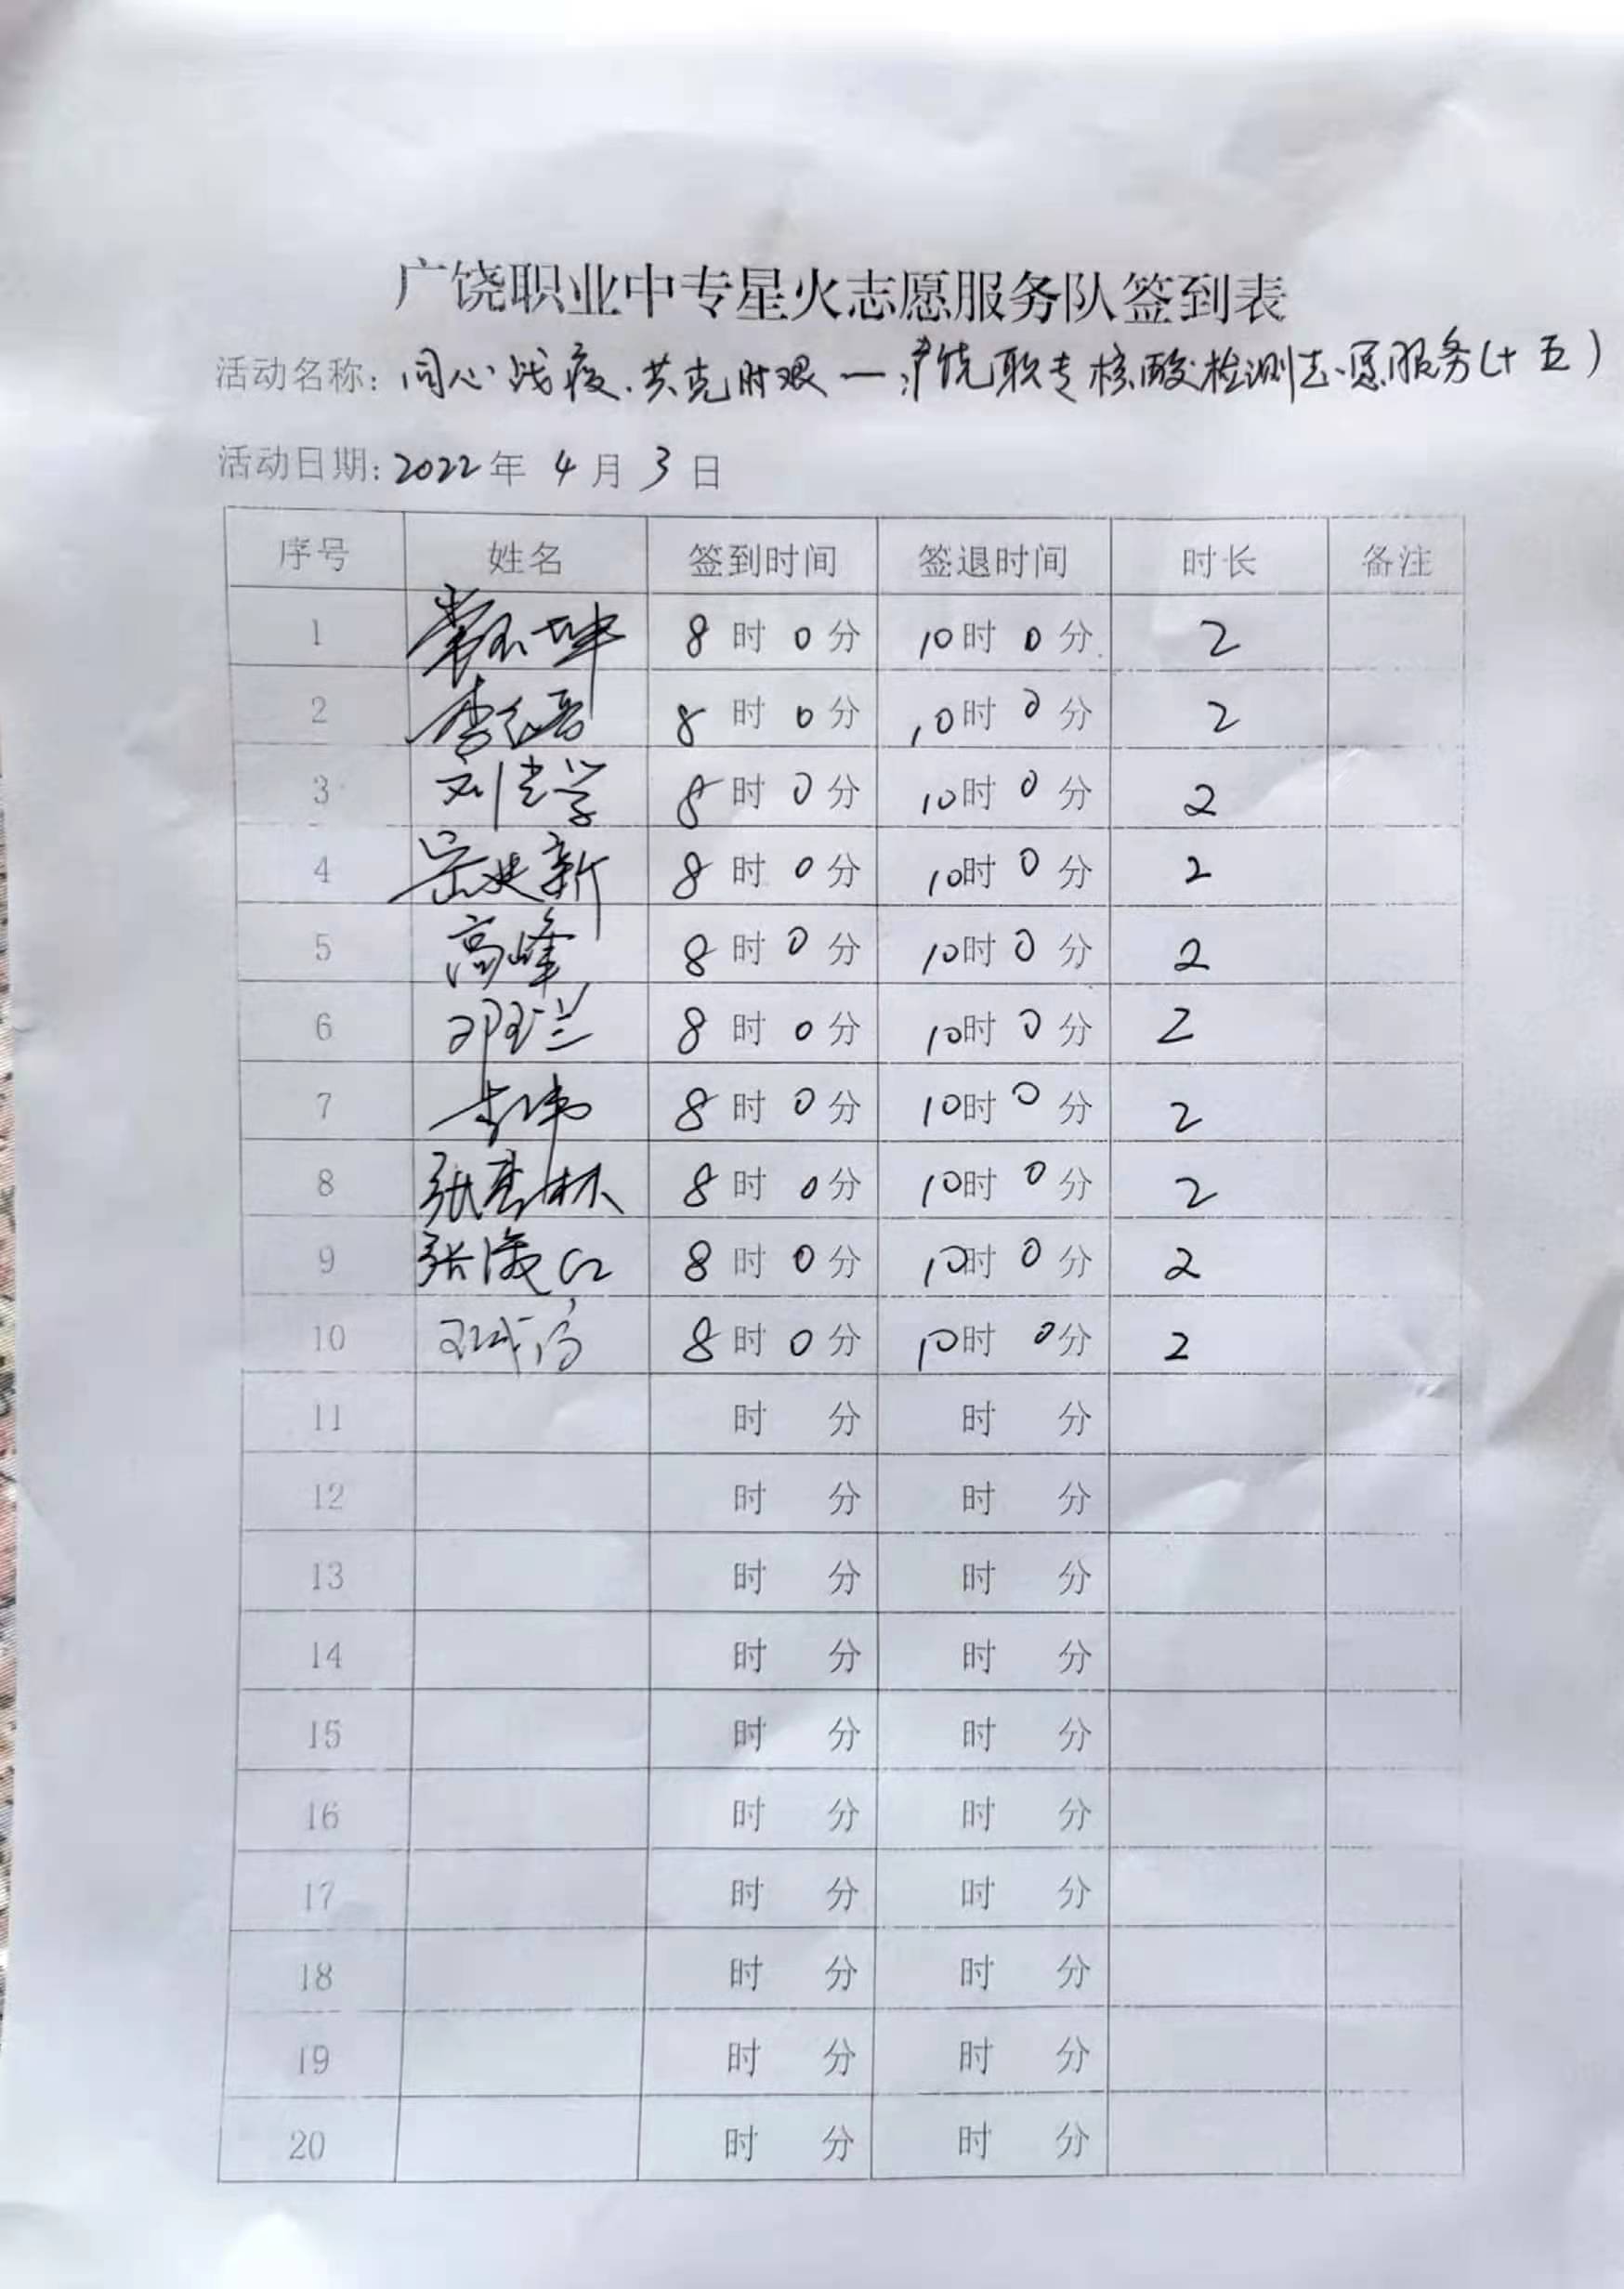 广饶职业中专星火志愿服务队签到表
活动名称: 同心战疫.共克时艰一广饶职专核酸检测志愿服务(十五)
活动日期: 2022年 4月 3日
序号 姓名 签到时间 签退时间 时长 备注
1 8时0分 10时0分 2
2 8时0分 10时0分 2
3 8时0分 10时0分 2
4 8时0分 10时0分 2
5 高峰 8时0分 10时0分 2
6 邓玉兰 8时0分 10时0分 2
7 李伟 8时0分 10时0分 2
8 8时0分 10时0分 2
9 8时0分 10时0分 2
10 8时0分 10时0分 2
11 时 分 时 分
12 时 分 时 分
13 时 分 时 分
14 时 分 时 分
15 时 分 时 分
16 时 分 时 分
17 时 分 时 分
18 时 分 时 分
19 时 分 时 分
20 时 分 时 分